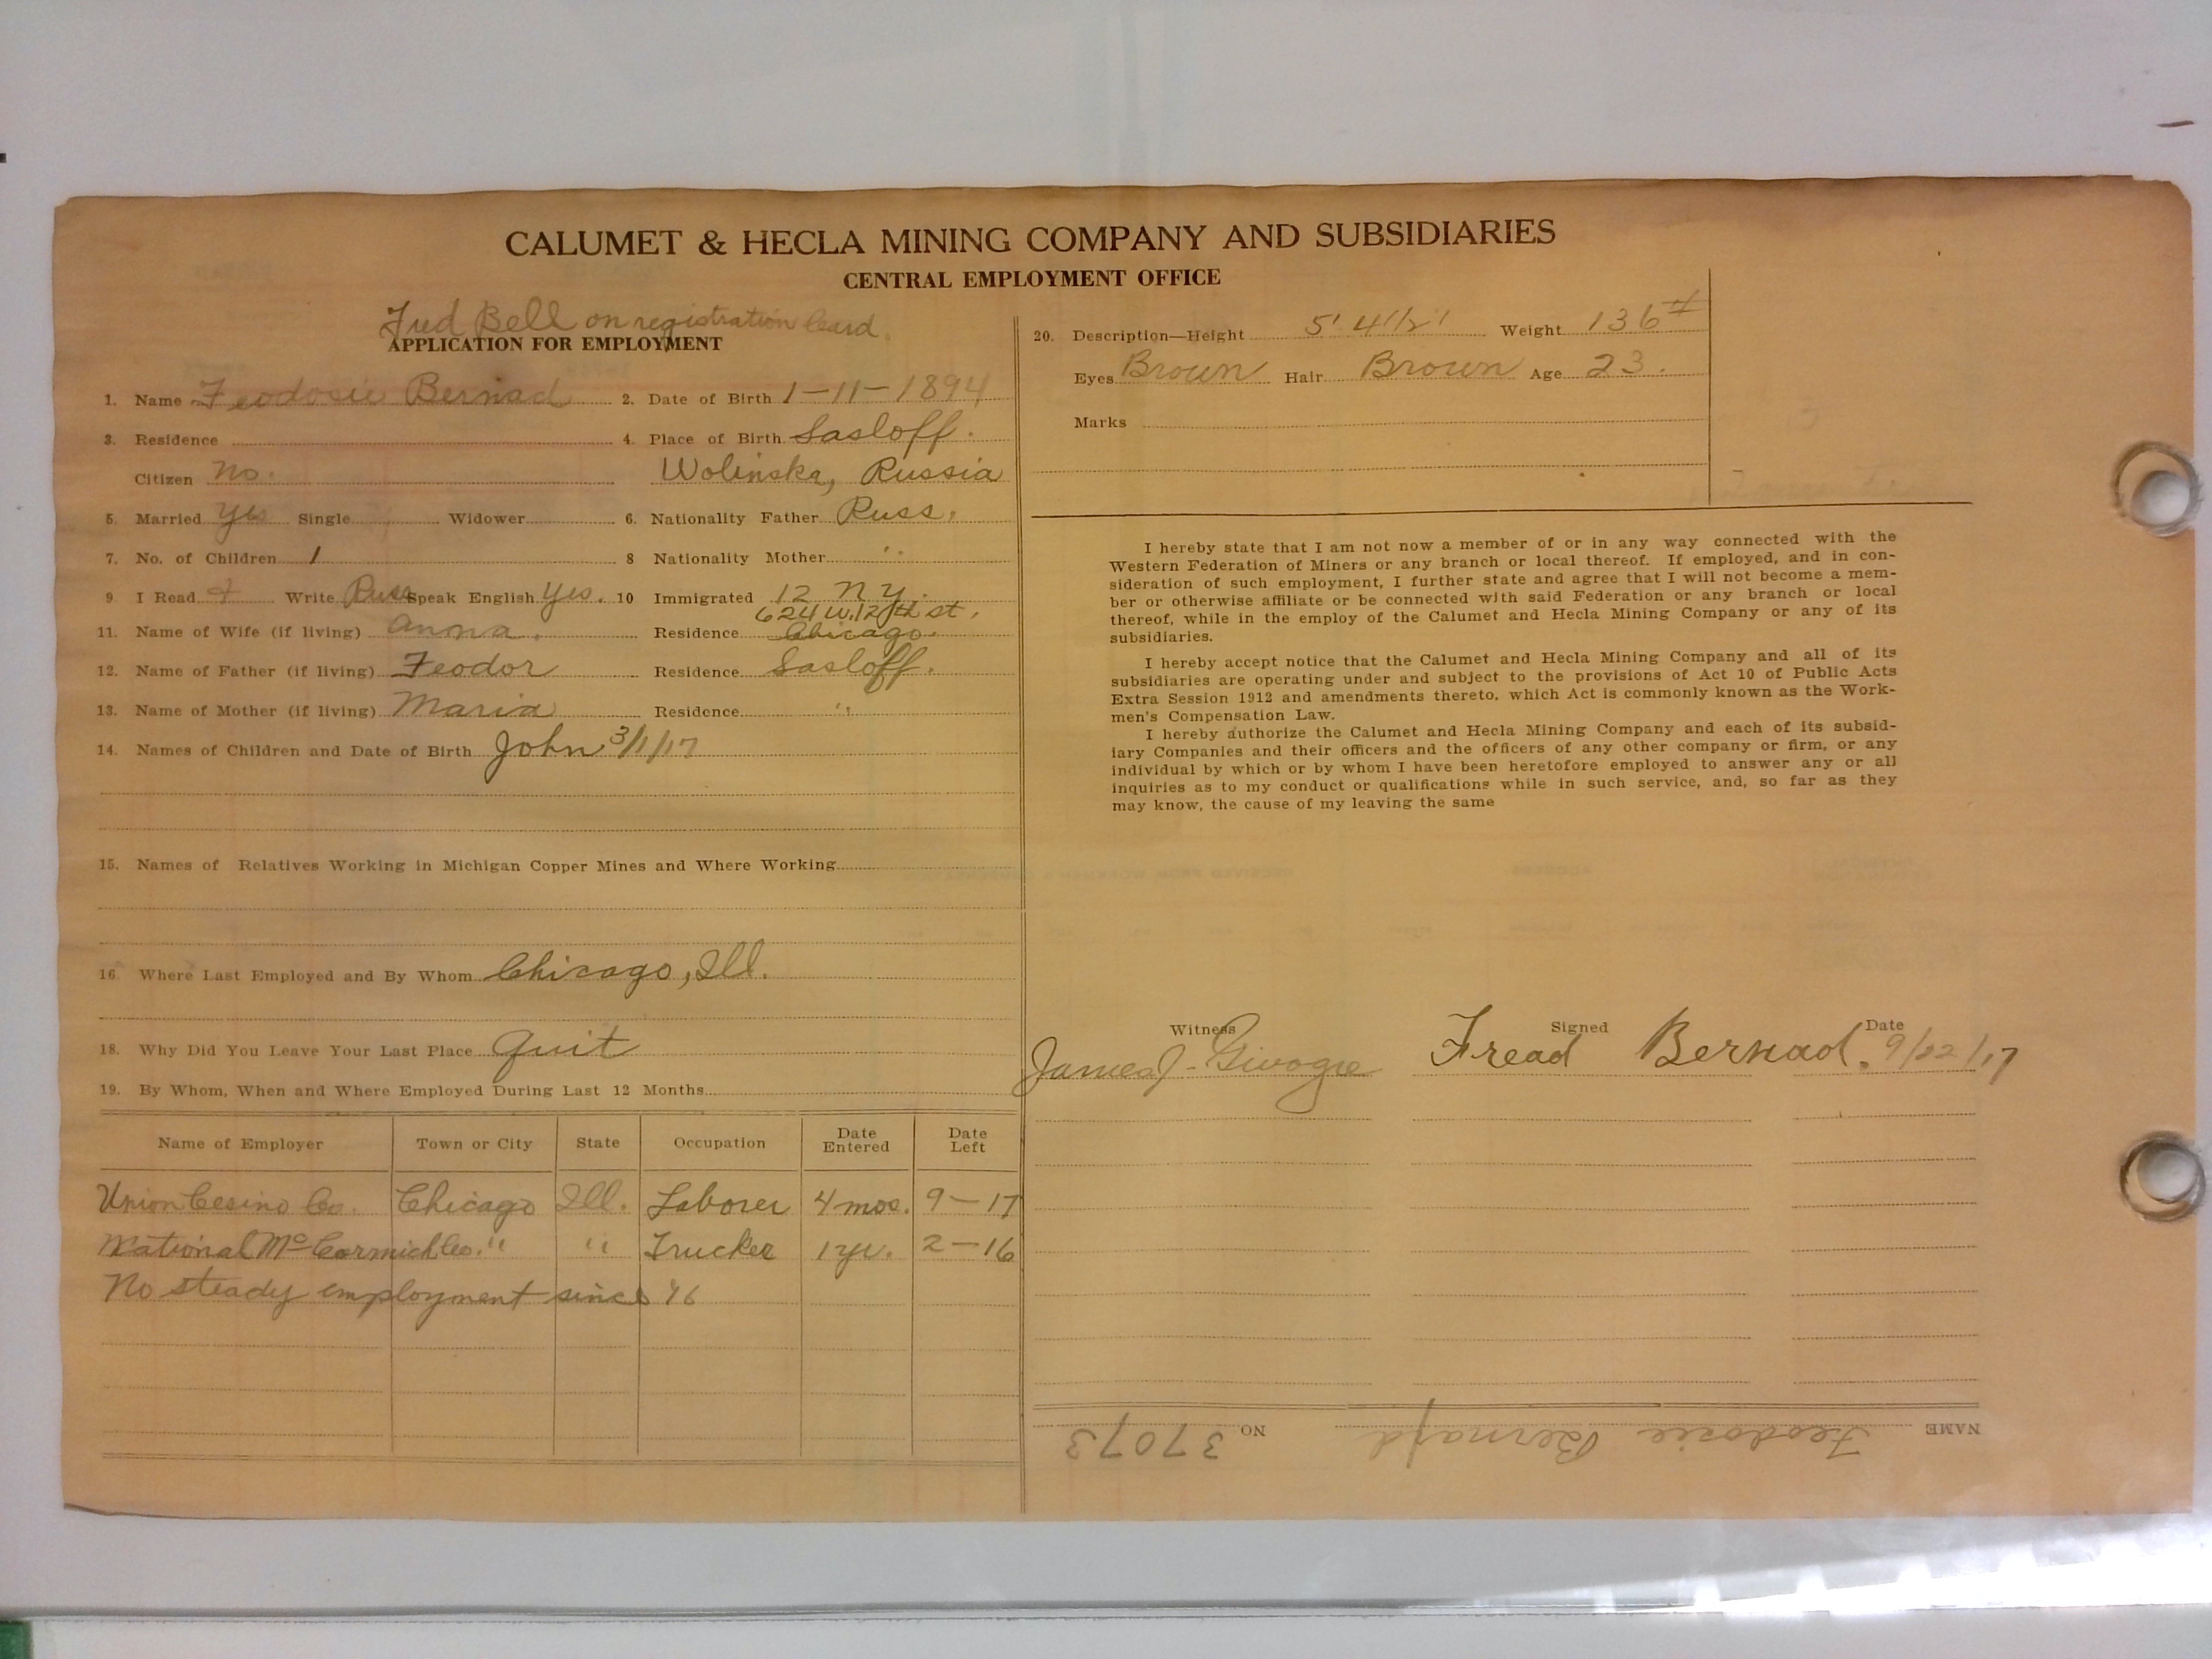 CALUMET & HECLA MINING COMPANY AND SUBSIDIARIES
CENTRAL EMPLOYMENT OFFICE
Fred Bell on registration Card.
APPLICATION FOR EMPLOYMENT
1. Name Feodosie Bernad 2. Date of Birth 1-11-1894
3. Residence 4. Place of Birth Sasloff.
Citizen no. Wolinska, Russia
5. Married yes Single Widower 6. Nationality Father Russ.
7. No. of Children 1 8 Nationality Mother "
9. I Read & Write Russ Speak English yes. 10 Immigrated 12 N Y.
624 W. 12th st.
11. Name of Wife (if living) Anna. Residence Chicago.
12. Name of Father (if living) Feodor Residence Sasloff.
13. Name of Mother (if living) Maria Residence "
14. Names of Children and Date of Birth John 3/1/17
15. Names of Relatives Working in Michigan Copper Mines and Where Working
16. Where Last Employed and By Whom Chicago, Ill.
18. Why Did You Leave Your Last Place Quit
19. By Whom, When and Where Employed During Last 12 Months
Name of Employer Town or City State Occupation Date Entered Date Left
Union Cesino Co. Chicago Ill. Laborer 4 mos. 9-17
National McCormick Co. " " Trucker 1 yr. 2-16
No steady employment since '16
20. Description—Height 5' 4 1/2" Weight 136#
Eyes Brown Hair Brown Age 23.
Marks
I hereby state that I am not now a member of or in any way connected with the
Western Federation of Miners or any branch or local thereof. If employed, and in con-
sideration of such employment, I further state and agree that I will not become a mem-
ber or otherwise affiliate or be connected with said Federation or any branch or local
thereof, while in the employ of the Calumet and Hecla Mining Company or any of its
subsidiaries.
I hereby accept notice that the Calumet and Hecla Mining Company and all of its
subsidiaries are operating under and subject to the provisions of Act 10 of Public Acts
Extra Session 1912 and amendments thereto, which Act is commonly known as the Work-
men's Compensation Law.
I hereby authorize the Calumet and Hecla Mining Company and each of its subsid-
iary Companies and their officers and the officers of any other company or firm, or any
individual by which or by whom I have been heretofore employed to answer any or all
inquiries as to my conduct or qualifications while in such service, and, so far as they
may know, the cause of my leaving the same
Witness Signed Date
James J. Fread Bernad. 9/22/17
NAME Feodosie Bernard NO 37073